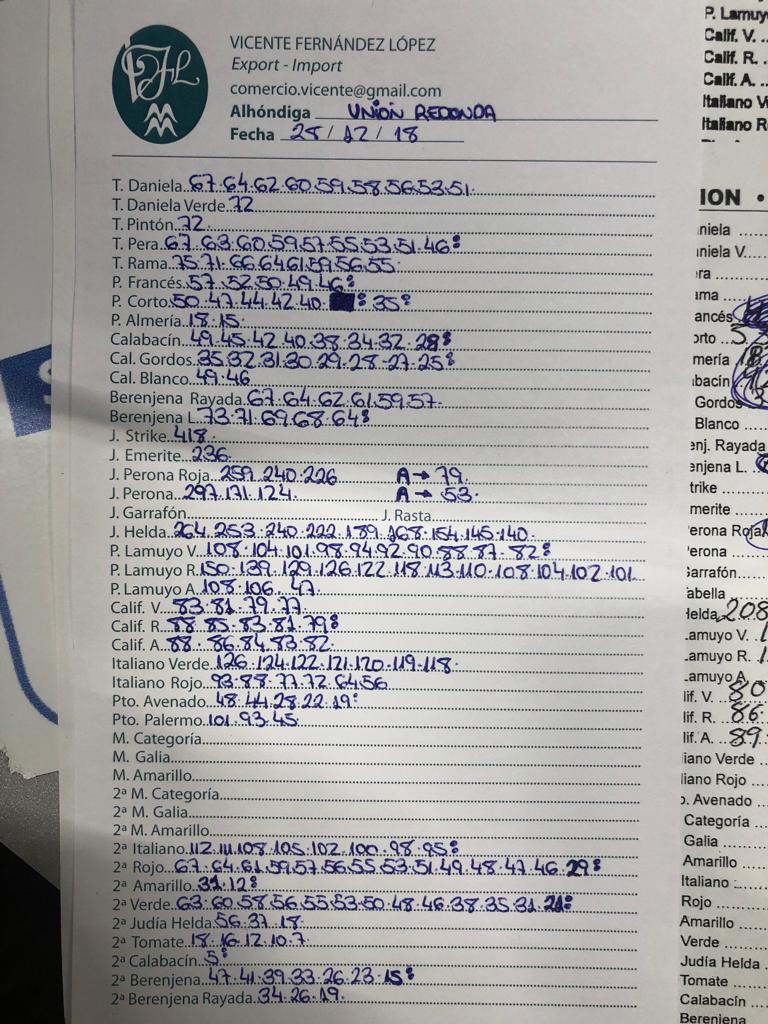 VICENTE FERNÁNDEZ LÓPEZ
Export - Import
comercio.vicente@gmail.com
Alhóndiga UNION REDONDA
Fecha 25/12/18
T. Daniela..67.64.62.60.59.58.56.53.51.
T. Daniela Verde.72
T. Pintón.72.
T. Pera.67.63.60.59.57.55.53.51.46º
T. Rama.75.71.66.64.61.59.56.55.
P. Francés.57.52.50.49.46º
P. Corto.50.47.44.42.40. º 35º
P. Almería.18.15.
Calabacín.49.45.42.40.38.34.32.28º
Cal. Gordos.35.32.31.30.29.28.27.25º
Cal. Blanco.49.46
Berenjena Rayada.67.64.62.61.59.57.
Berenjena L.73.71.69.68.64º
J. Strike.418.
J. Emerite.236.
J. Perona Roja.259.240.226 A→79.
J. Perona.297.171.124. A→53.
J. Garrafón J. Rasta
J. Helda.264.253.240.222.189.168.154.145.140.
P. Lamuyo V.108.104.101.98.94.92.90.88.87.82º
P. Lamuyo R.150.139.129.126.122.118.113.110.108.104.102.101.
P. Lamuyo A.108.106.47.
Calif. V.83.81.79.77.
Calif. R.88.85.83.81.79º
Calif. A.88.86.84.83.82.
Italiano Verde.126.124.122.121.120.119.118.
Italiano Rojo.93.88.77.72.64.56
Pto. Avenado.48.44.28.22.19º
Pto. Palermo.101.93.45.
M. Categoría
M. Galia
M. Amarillo
2ª M. Categoría
2ª M. Galia
2ª M. Amarillo
2ª Italiano.112.111.108.105.102.100.98.95º
2ª Rojo.67.64.61.59.57.56.55.53.51.49.48.47.46.29º
2ª Amarillo.31.12º
2ª Verde.63.60.58.56.55.53.50.48.46.38.35.31.21º
2ª Judía Helda.56.37.18.
2ª Tomate.18.16.12.10.7.
2ª Calabacín.5º
2ª Berenjena.47.41.39.33.26.23.15º
2ª Berenjena Rayada.34.26.19.
P. Lamuy
Calif. V.
Calif. R.
Calif. A.
Italiano V
Italiano R
ION •
niela
niela V.
era
ama
ancés
orto
mería 18
bacín
Gordos
Blanco
enj. Rayada
enjena L.
trike
merite
Perona Roja
Perona
Garrafón
abella
Helda 208
amuyo V.
amuyo R.
amuyo A.
lif. V. 80
lif. R. 86
lif. A. 89
iano Verde
liano Rojo
o. Avenado
Categoría
Galia
Amarillo
Italiano
Rojo
Amarillo
Verde
Judía Helda
Tomate
Calabacín
Berenjena